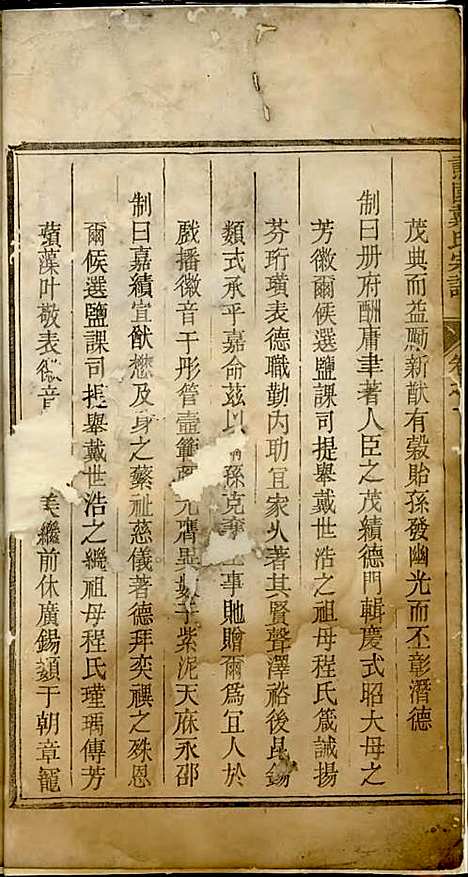 茂典而益勵新猷有穀貽孫發幽光而丕彰潛德
制曰册府酬庸聿著人臣之茂績德門輯慶式昭大母之
芳徽爾候選鹽課司提舉戴世浩之祖母程氏箴誡揚
芬珩璜表德職勤內助宜家久著其賢聲澤裕後昆錫
類式承乎嘉命茲以爾孫克襄王事貤贈爾為宜人於
戲播徽音于彤管壼範彌光膺異數于紫泥天庥永邵
制曰嘉績宜猷懋及身之蘩祉慈儀著德拜奕禩之殊恩
爾候選鹽課司提舉戴世浩之繼祖母程氏瑾瑀傳芳
蘋藻叶敬表徽音 美繼前休廣錫類于朝章寵
戴氏宗譜 卷